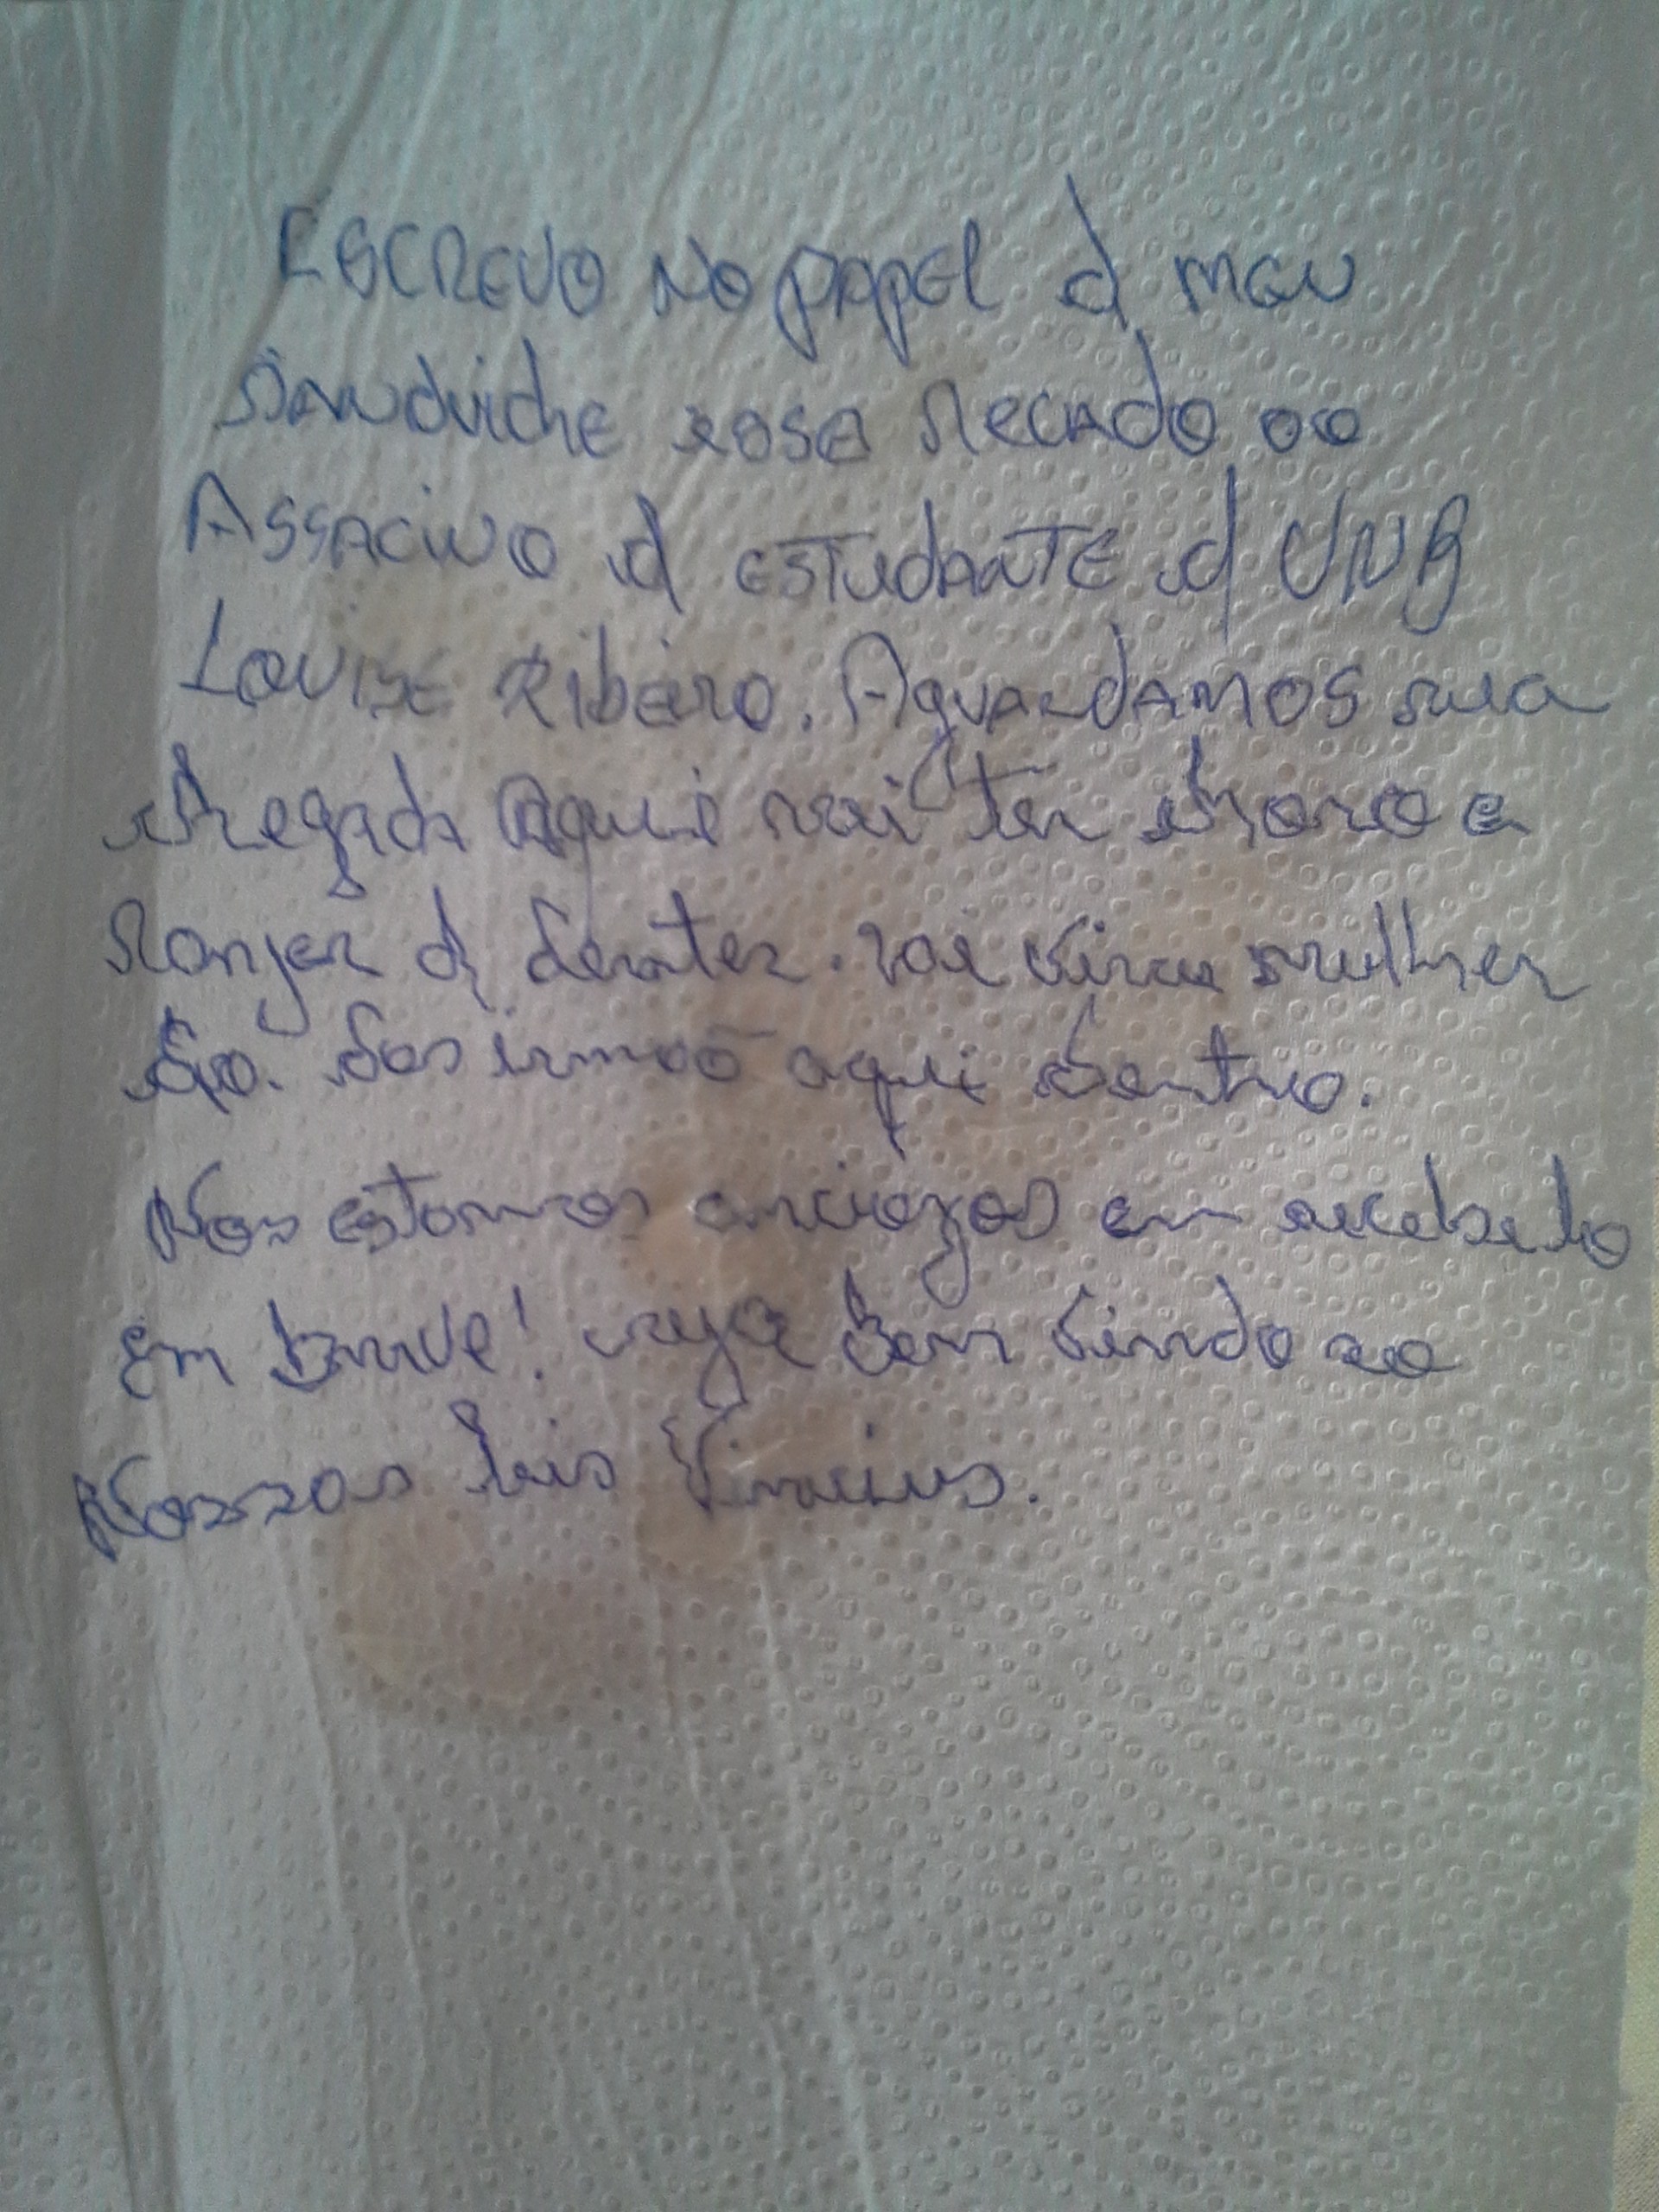 ESCREVO NO PAPEL d MEU
SANduiche eose Recado ao
ASSACINO d ESTUdANTE d UNB
LOUISE RibEiro. AguaRdAMOS sua
chegada Aqui vai ter choro e
Ranjer d denter. vai vira mulher
dos irmaõ aqui dentro.
Nos estamos anciozos em recebelo
em breve! seja bem vindo ao
Nossos Luis Vinicius.